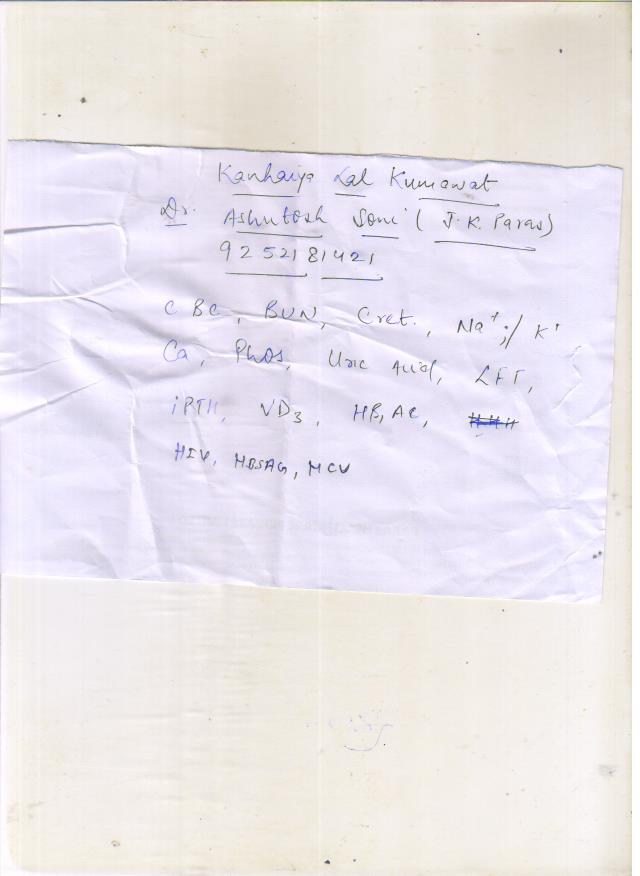 Kanhaiya Lal Kumawat
Dr. Ashutosh Soni (J.K. Paras)
9252181421
CBC, BUN, Cret., Na⁺/K⁺
Ca, Phos, Uric Acid, LFT,
iPTH, VD3, HB,AC,
HIV, HBSAG, HCV